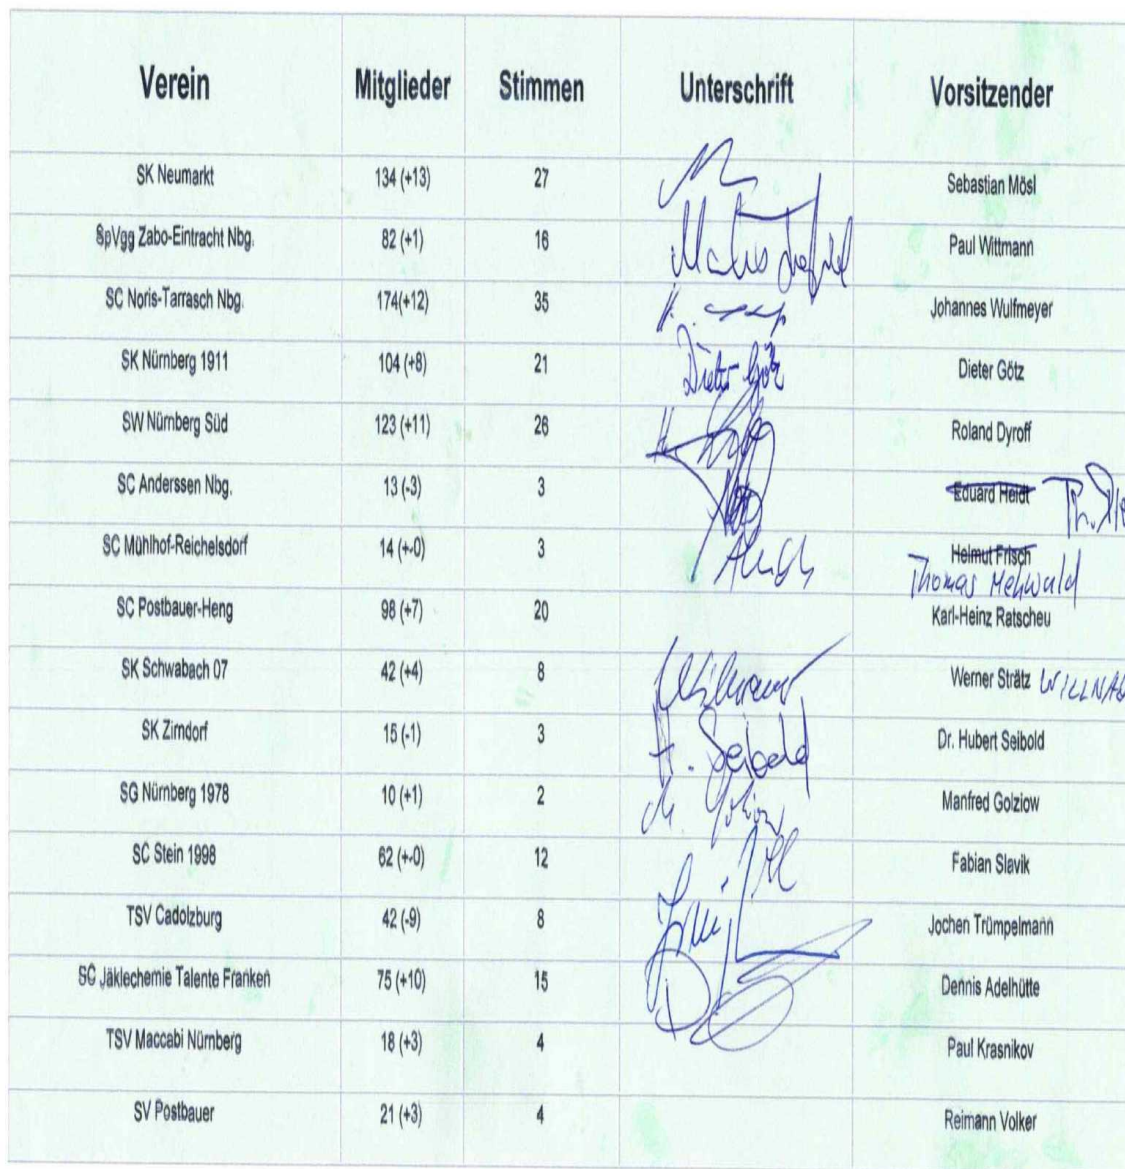 Verein Mitglieder Stimmen Unterschrift Vorsitzender
SK Neumarkt 134 (+13) 27 Sebastian Mösl
SpVgg Zabo-Eintracht Nbg. 82 (+1) 16 Paul Wittmann
SC Noris-Tarrasch Nbg. 174(+12) 35 Johannes Wulfmeyer
SK Nürnberg 1911 104 (+8) 21 Dieter Götz Dieter Götz
SW Nürnberg Süd 123 (+11) 26 Roland Dyroff
SC Anderssen Nbg. 13 (-3) 3 Eduard Heidt Th.
SC Mühlhof-Reichelsdorf 14 (+-0) 3 Helmut Frisch
Thomas Mehwald
SC Postbauer-Heng 98 (+7) 20 Karl-Heinz Ratscheu
SK Schwabach 07 42 (+4) 8 Werner Strätz
SK Zirndorf 15 (-1) 3 H. Seibold Dr. Hubert Seibold
SG Nürnberg 1978 10 (+1) 2 Manfred Golziow
SC Stein 1998 62 (+-0) 12 Fabian Slavik
TSV Cadolzburg 42 (-9) 8 Jochen Trümpelmann
SC Jäklechemie Talente Franken 75 (+10) 15 Dennis Adelhütte
TSV Maccabi Nürnberg 18 (+3) 4 Paul Krasnikov
SV Postbauer 21 (+3) 4 Reimann Volker